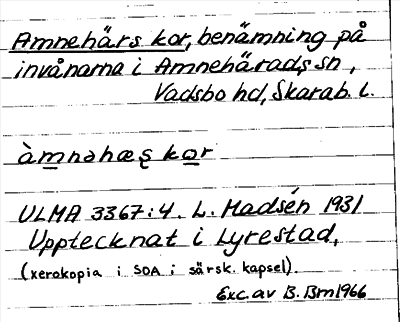 Amnehärs kor, benämning på
invånarna i Amnehärads sn,
Vadsbo hd, Skarab. l.
àmnəhæʂ kor
ULMA 3367:4. L. Madsén 1931
Upptecknat i Lyrestad,
(xerokopia i SOA i särsk. kapsel).
Exc. av B. Bm 1966